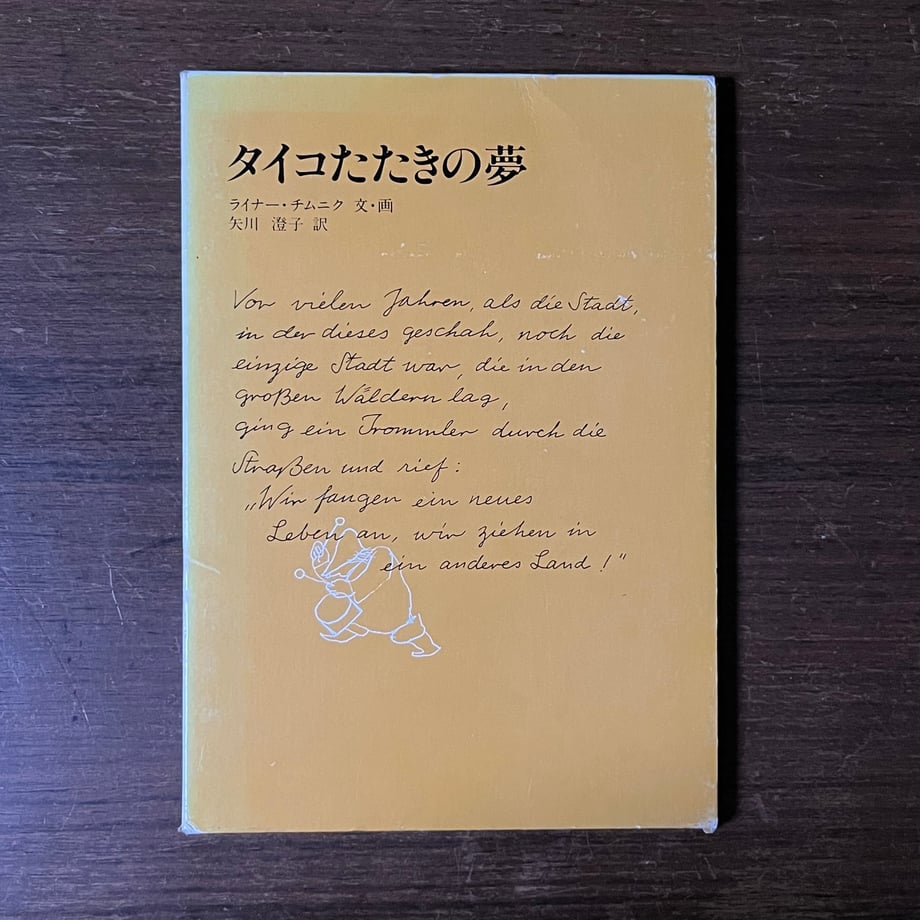 タイコたたきの夢
ライナー・チムニク 文・画
矢川 澄子 訳
Vor vielen Jahren, als die Stadt,
in der dieses geschah, noch die
einzige Stadt war, die in den
großen Wäldern lag,
ging ein Trommler durch die
Straßen und rief:
„Wir fangen ein neues
Leben an, wir ziehen in
ein anderes Land!"